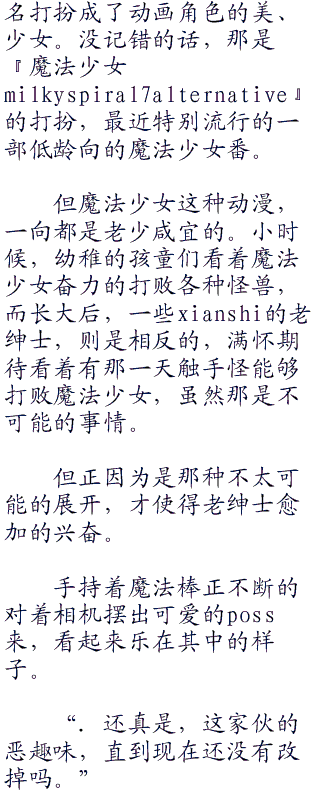 名打扮成了动画角色的美、
少女。没记错的话，那是
『魔法少女
milkyspiral7alternative』
的打扮，最近特别流行的一
部低龄向的魔法少女番。
但魔法少女这种动漫，
一向都是老少咸宜的。小时
候，幼稚的孩童们看着魔法
少女奋力的打败各种怪兽，
而长大后，一些xianshi的老
绅士，则是相反的，满怀期
待看着有那一天触手怪能够
打败魔法少女，虽然那是不
可能的事情。
但正因为是那种不太可
能的展开，才使得老绅士愈
加的兴奋。
手持着魔法棒正不断的
对着相机摆出可爱的poss
来，看起来乐在其中的样
子。
“．还真是，这家伙的
恶趣味，直到现在还没有改
掉吗。”